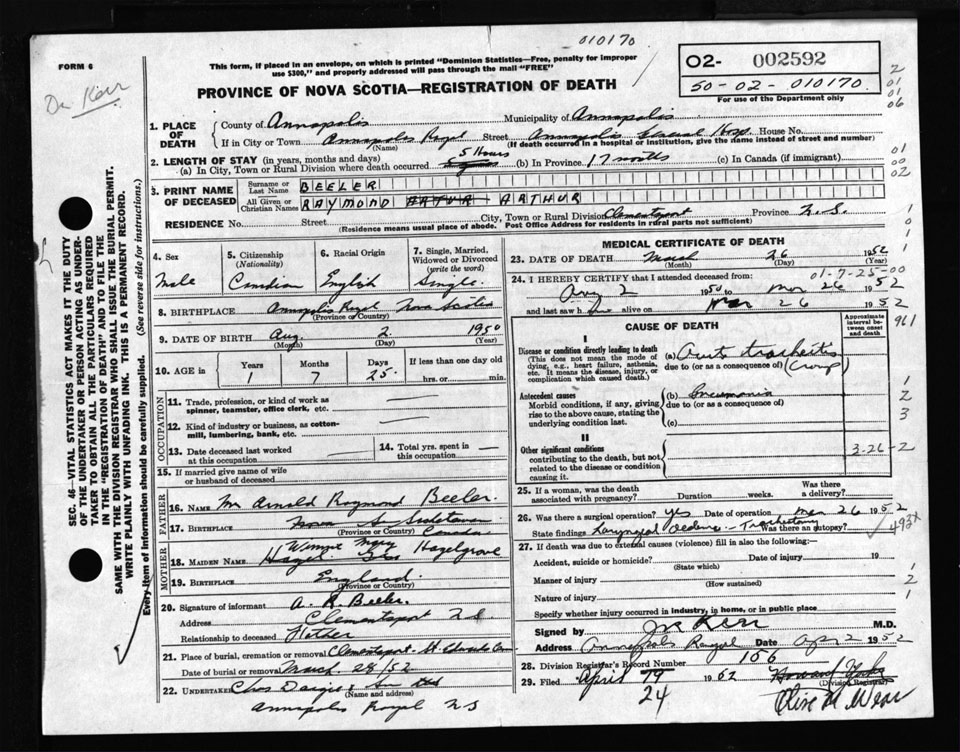 010170
FORM 6
This form, if placed in an envelope, on which is printed "Dominion Statistics—Free, penalty for improper
use $300," and properly addressed will pass through the mail "FREE"
O2- 002592
50-02-010170
For use of the Department only
Dr Kerr
PROVINCE OF NOVA SCOTIA—REGISTRATION OF DEATH
2
01
01
06
01
00
02
1. PLACE OF DEATH
County of Annapolis Municipality of Annapolis
If in City or Town Annapolis Royal Street Annapolis General Hosp. House No.
(Name) (If death occurred in a hospital or institution, give the name instead of street and number)
2. LENGTH OF STAY (in years, months and days)
(a) In City, Town or Rural Division where death occurred 5 Hours (b) In Province 17 months (c) In Canada (if immigrant)
3. PRINT NAME OF DECEASED
Surname or Last Name BEELER
All Given or Christian Names RAYMOND ARTHUR
City, Town or Rural Division Clementsport Province N.S.
RESIDENCE No. Street
(Residence means usual place of abode. Post Office Address for residents in rural parts not sufficient)
SEC. 46—VITAL STATISTICS ACT MAKES IT THE DUTY
OF THE UNDERTAKER OR PERSON ACTING AS UNDER-
TAKER TO OBTAIN ALL THE PARTICULARS REQUIRED
IN THE "REGISTRATION OF DEATH" AND TO FILE THE
SAME WITH THE DIVISION REGISTRAR WHO SHALL ISSUE THE BURIAL PERMIT.
WRITE PLAINLY WITH UNFADING INK. THIS IS A PERMANENT RECORD.
Every item of information should be carefully supplied. (See reverse side for instructions.)
4. Sex
Male
5. Citizenship
(Nationality)
Canadian
6. Racial Origin
English
7. Single, Married,
Widowed or Divorced
(write the word)
Single
8. BIRTHPLACE Annapolis Royal Nova Scotia
(Province or Country)
9. DATE OF BIRTH Aug. 2 1950
(Month) (Day) (Year)
10. AGE in Years Months Days If less than one day old
1 7 25 hrs. or min.
OCCUPATION
11. Trade, profession, or kind of work as
spinner, teamster, office clerk, etc.
12. Kind of industry or business, as cotton-
mill, lumbering, bank, etc.
13. Date deceased last worked
at this occupation
14. Total yrs. spent in
this occupation
15. If married give name of wife
or husband of deceased
FATHER
16. NAME Mr Arnold Raymond Beeler
17. BIRTHPLACE Nova
(Province or Country) Canada
MOTHER
18. MAIDEN NAME Hazelgrove
19. BIRTHPLACE England
(Province or Country)
20. Signature of informant A. R. Beeler
Address Clementsport N.S
Relationship to deceased Father
21. Place of burial, cremation or removal Clementsport St Edwards Cem
Date of burial or removal March 28/52
22. UNDERTAKER Chas
(Name and address)
Annapolis Royal N S
MEDICAL CERTIFICATE OF DEATH
23. DATE OF DEATH March 26 1952
(Month) (Day) (Year)
01-7-25-00
24. I HEREBY CERTIFY that I attended deceased from:
Aug 2 1950 to Mar 26 1952
and last saw h alive on Mar 26 1952
CAUSE OF DEATH
Approximate
interval be-
tween onset
and death
961
I
Disease or condition directly leading to death
(This does not mean the mode of
dying, e.g., heart failure, asthenia,
etc. It means the disease, injury, or
complication which caused death.)
(a) Acute tracheitis
due to (or as a consequence of) (Croup)
Antecedent causes
Morbid conditions, if any, giving
rise to the above cause, stating the
underlying condition last.
(b) Pneumonia
due to (or as a consequence of)
(c)
1
2
3
II
Other significant conditions
contributing to the death, but not
related to the disease or condition
causing it.
3-26-2
25. If a woman, was the death
associated with pregnancy? Duration weeks. Was there
a delivery?
26. Was there a surgical operation? yes Date of operation Mar 26 1952
State findings Laryngeal oedema - Tracheotomy Was there an autopsy?
493x
27. If death was due to external causes (violence) fill in also the following:
Accident, suicide or homicide? Date of injury 19
(State which)
Manner of injury
(How sustained)
Nature of injury
Specify whether injury occurred in industry, in home, or in public place
1
2
1
Signed by Kerr M.D.
Address Annapolis Royal Date Apr 2 1952
28. Division Registrar's Record Number 156
29. Filed April 19 1952
24
(Division Registrar)